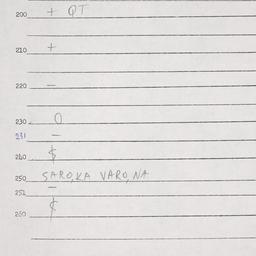 200 + QT
210 +
220 -
230 0
231 -
240 $
250 SARO,KA VARO,NA
252 -
260 ₵